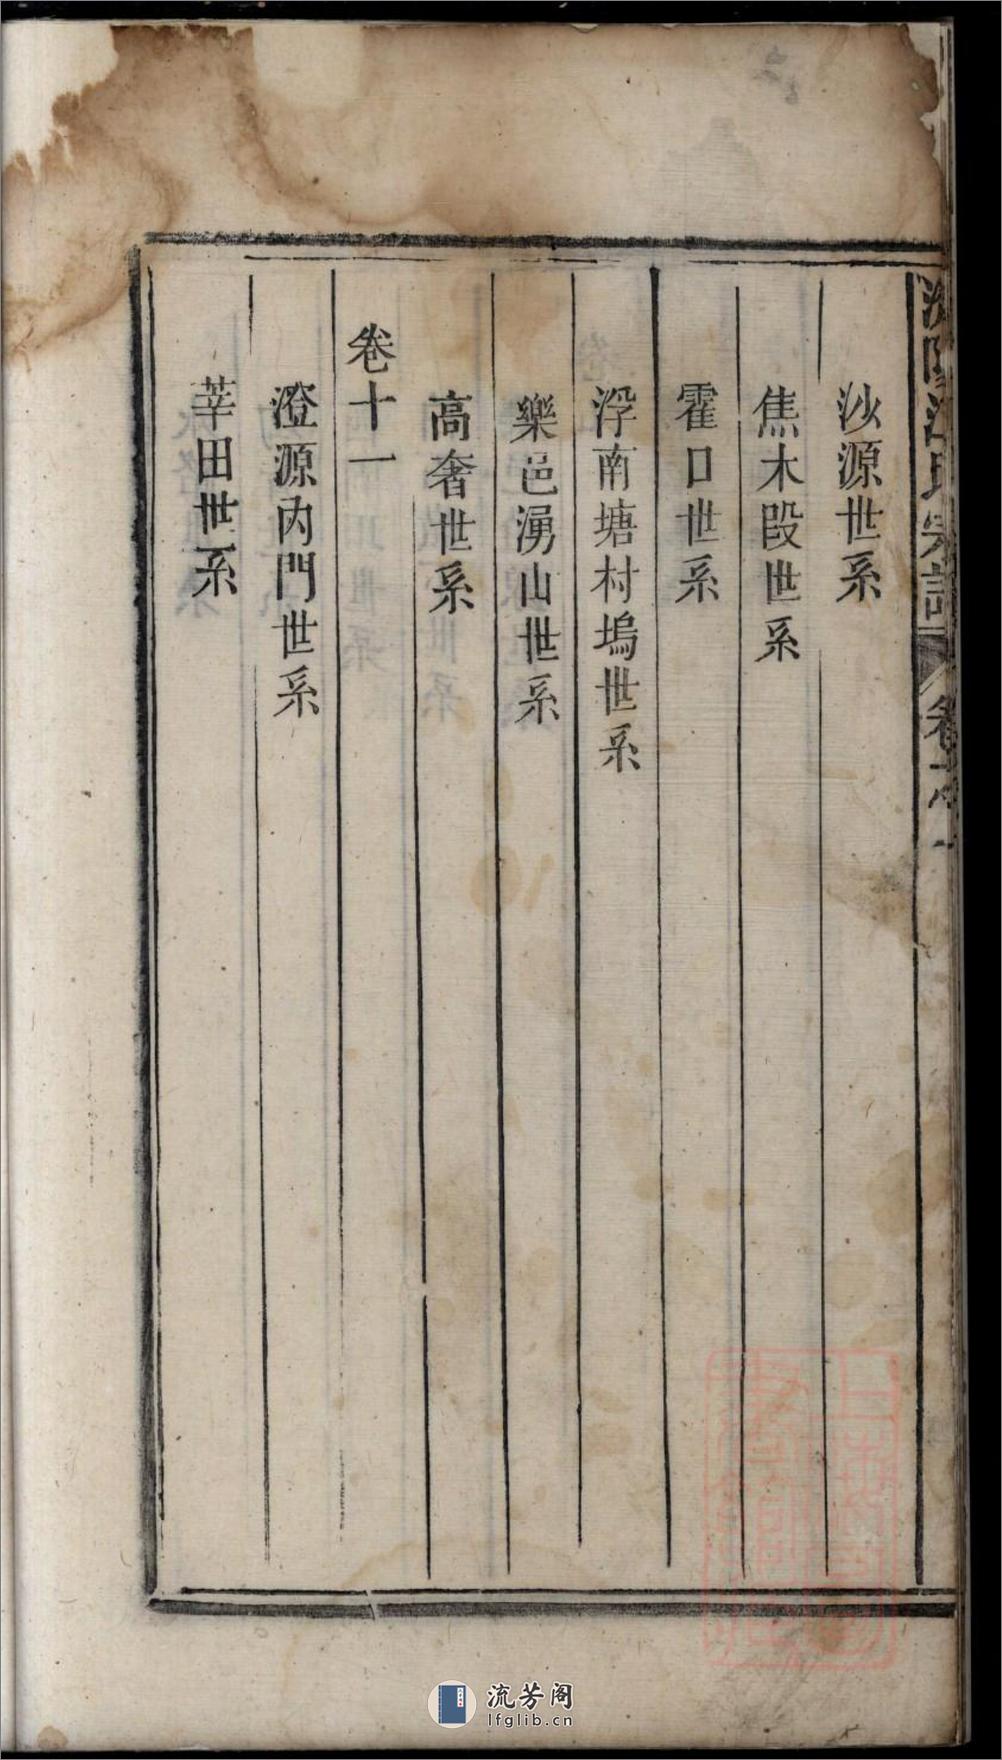 沙源世系
焦木段世系
霍口世系
浮南塘村塢世系
樂邑湧山世系
高奢世系
卷十一
澄源內門世系
莘田世系
流芳阁
lfglib.cn